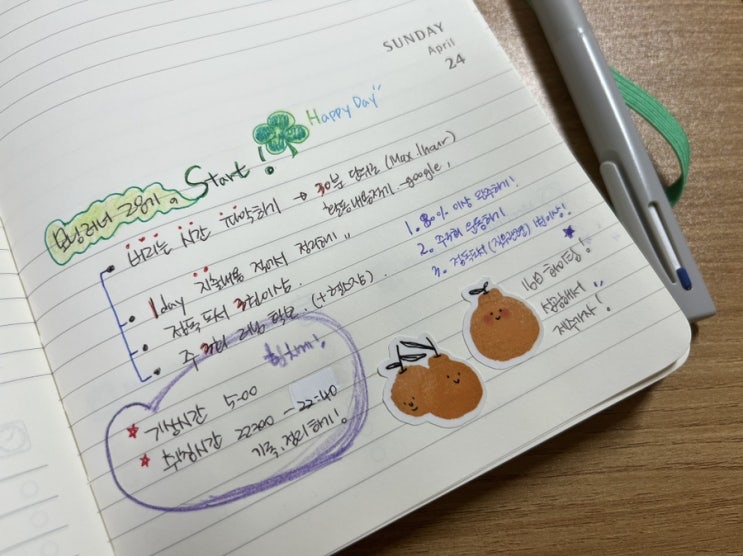 SUNDAY
April
24
Happy Day
모닝러너 28기. Start!
버리는 시간 파악하기 → 30분 단위로 (Max. 1hour)
활동내용적기 - google.
1day 지출내용 집에서 정리하기
정독 도서 3권이상.
주 3회 러닝 확보. (+ 헬스장).
1. 80% 이상 완주하기!
2. 주3회 운동하기
3. 정독도서 1권이상!
힘내!
기상시간 5:00
취침시간 22:00 - 22:40
기록, 정리하기!
화이팅!
성공해서
제주가자!